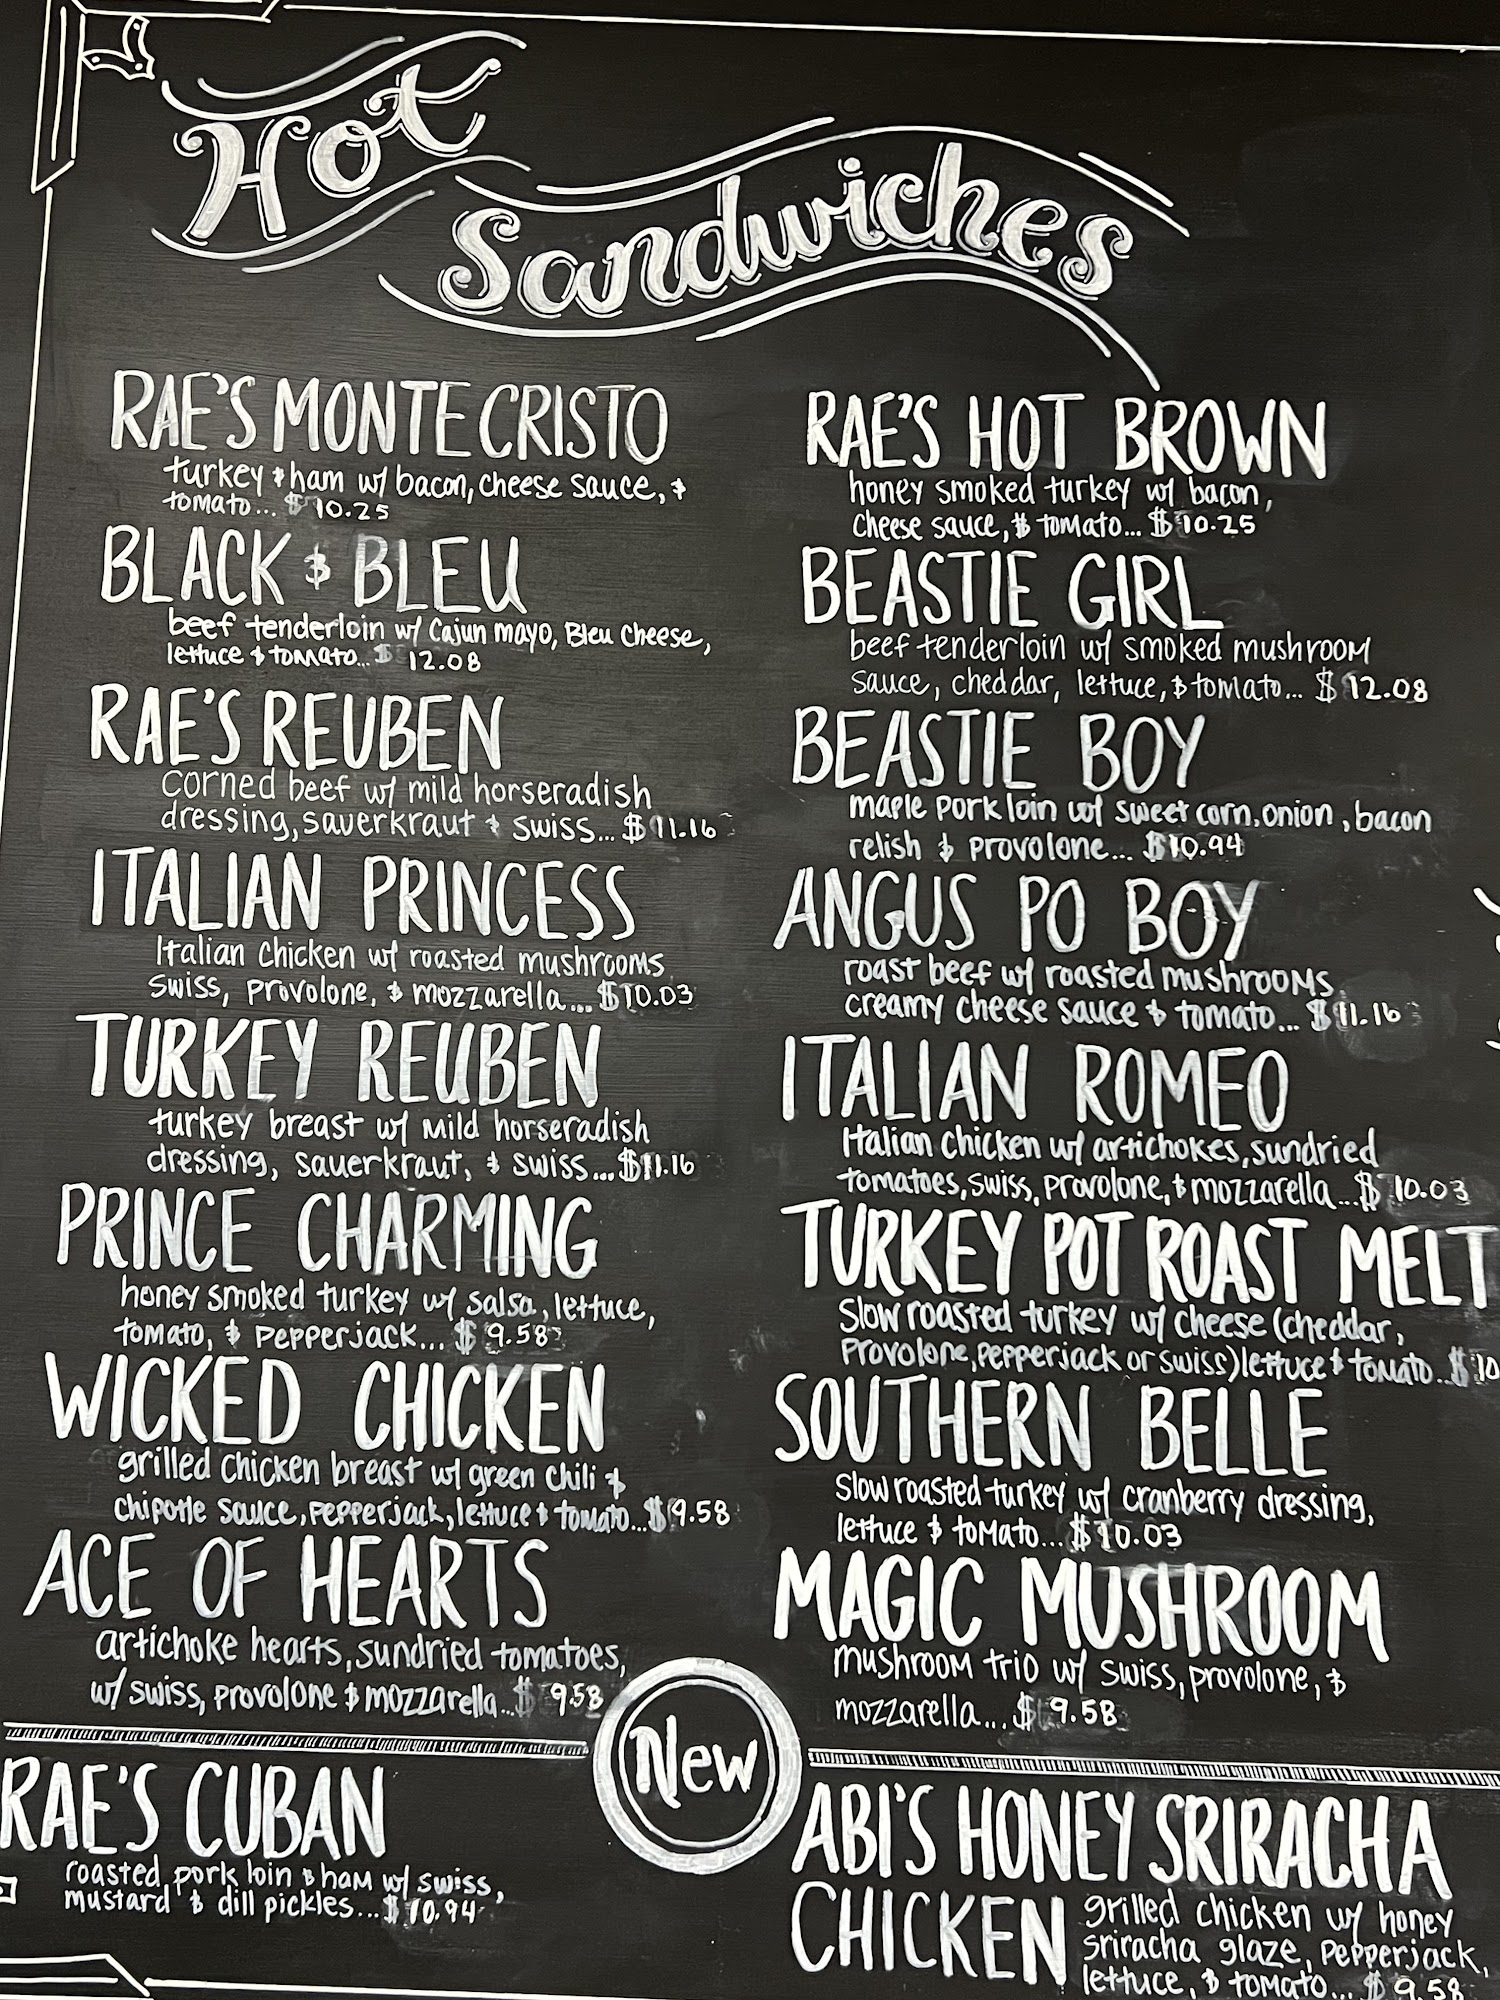 Hot
Sandwiches
RAE'S MONTE CRISTO
turkey & ham w/ bacon, cheese sauce, &
tomato... $10.25
BLACK & BLEU
beef tenderloin w/ Cajun mayo, Bleu Cheese,
lettuce & tomato... $12.08
RAE'S REUBEN
corned beef w/ mild horseradish
dressing, sauerkraut & swiss... $11.16
ITALIAN PRINCESS
Italian Chicken w/ roasted mushrooms
swiss, provolone, & mozzarella... $10.03
TURKEY REUBEN
turkey breast w/ mild horseradish
dressing, sauerkraut, & swiss... $11.16
PRINCE CHARMING
honey smoked turkey w/ salsa, lettuce,
tomato, & pepperjack... $9.58
WICKED CHICKEN
grilled chicken breast w/ green chili &
chipotle sauce, pepperjack, lettuce & tomato... $9.58
ACE OF HEARTS
artichoke hearts, sundried tomatoes,
w/ swiss, provolone & mozzarella... $9.58
RAE'S HOT BROWN
honey smoked turkey w/ bacon,
cheese sauce, & tomato... $10.25
BEASTIE GIRL
beef tenderloin w/ smoked mushroom
sauce, cheddar, lettuce, & tomato... $12.08
BEASTIE BOY
maple pork loin w/ sweet corn, onion, bacon
relish & provolone... $10.94
ANGUS PO BOY
roast beef w/ roasted mushrooms
creamy cheese sauce & tomato... $11.16
ITALIAN ROMEO
Italian chicken w/ artichokes, sundried
tomatoes, swiss, provolone, & mozzarella... $10.03
TURKEY POT ROAST MELT
slow roasted turkey w/ cheese (cheddar,
provolone, pepperjack or swiss) lettuce & tomato... $10
SOUTHERN BELLE
slow roasted turkey w/ cranberry dressing,
lettuce & tomato... $10.03
MAGIC MUSHROOM
mushroom trio w/ swiss, provolone, &
mozzarella... $9.58
New
RAE'S CUBAN
roasted pork loin & ham w/ swiss,
mustard & dill pickles... $10.94
ABI'S HONEY SRIRACHA
CHICKEN
grilled chicken w/ honey
sriracha glaze, pepperjack,
lettuce, & tomato... $9.58